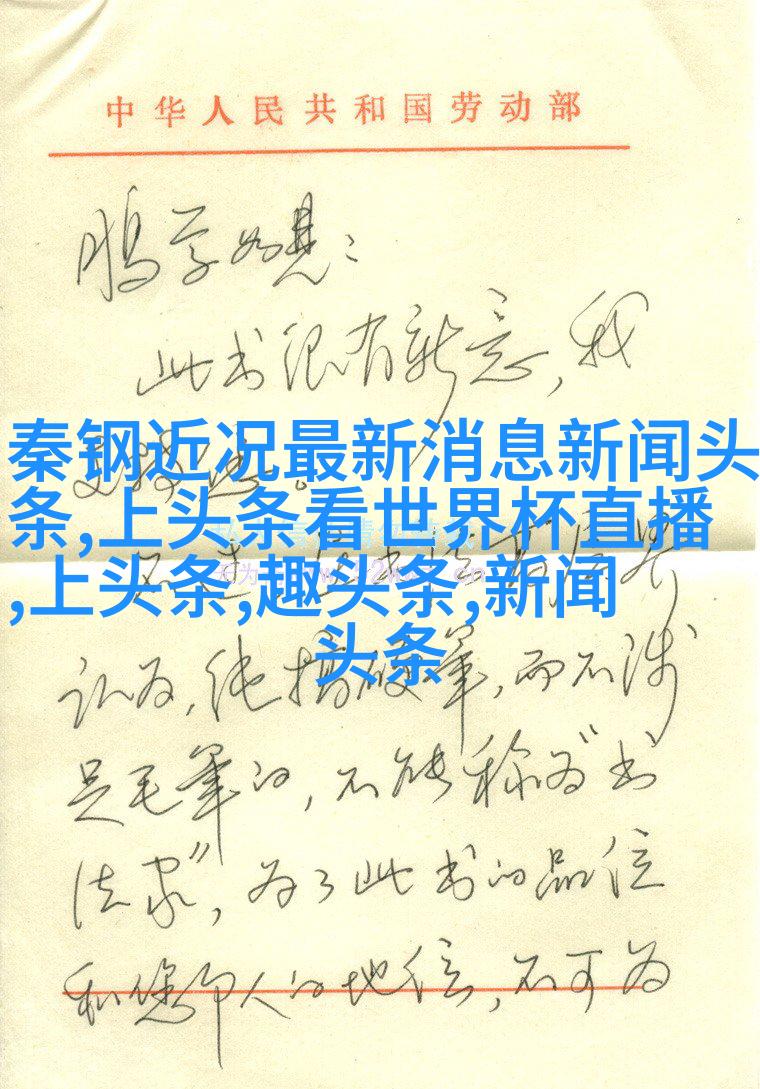 中华人民共和国劳动部
鹏学如见：
此书很有新意，我
秦钢近况最新消息新闻头
条,上头条看世界杯直播
,上头条,趣头条,新闻
头条
认为，纯搞硬笔，而不涉
足毛笔的，不能称为“书
法家”，为了此书的品位
和您个人的地位，不可为